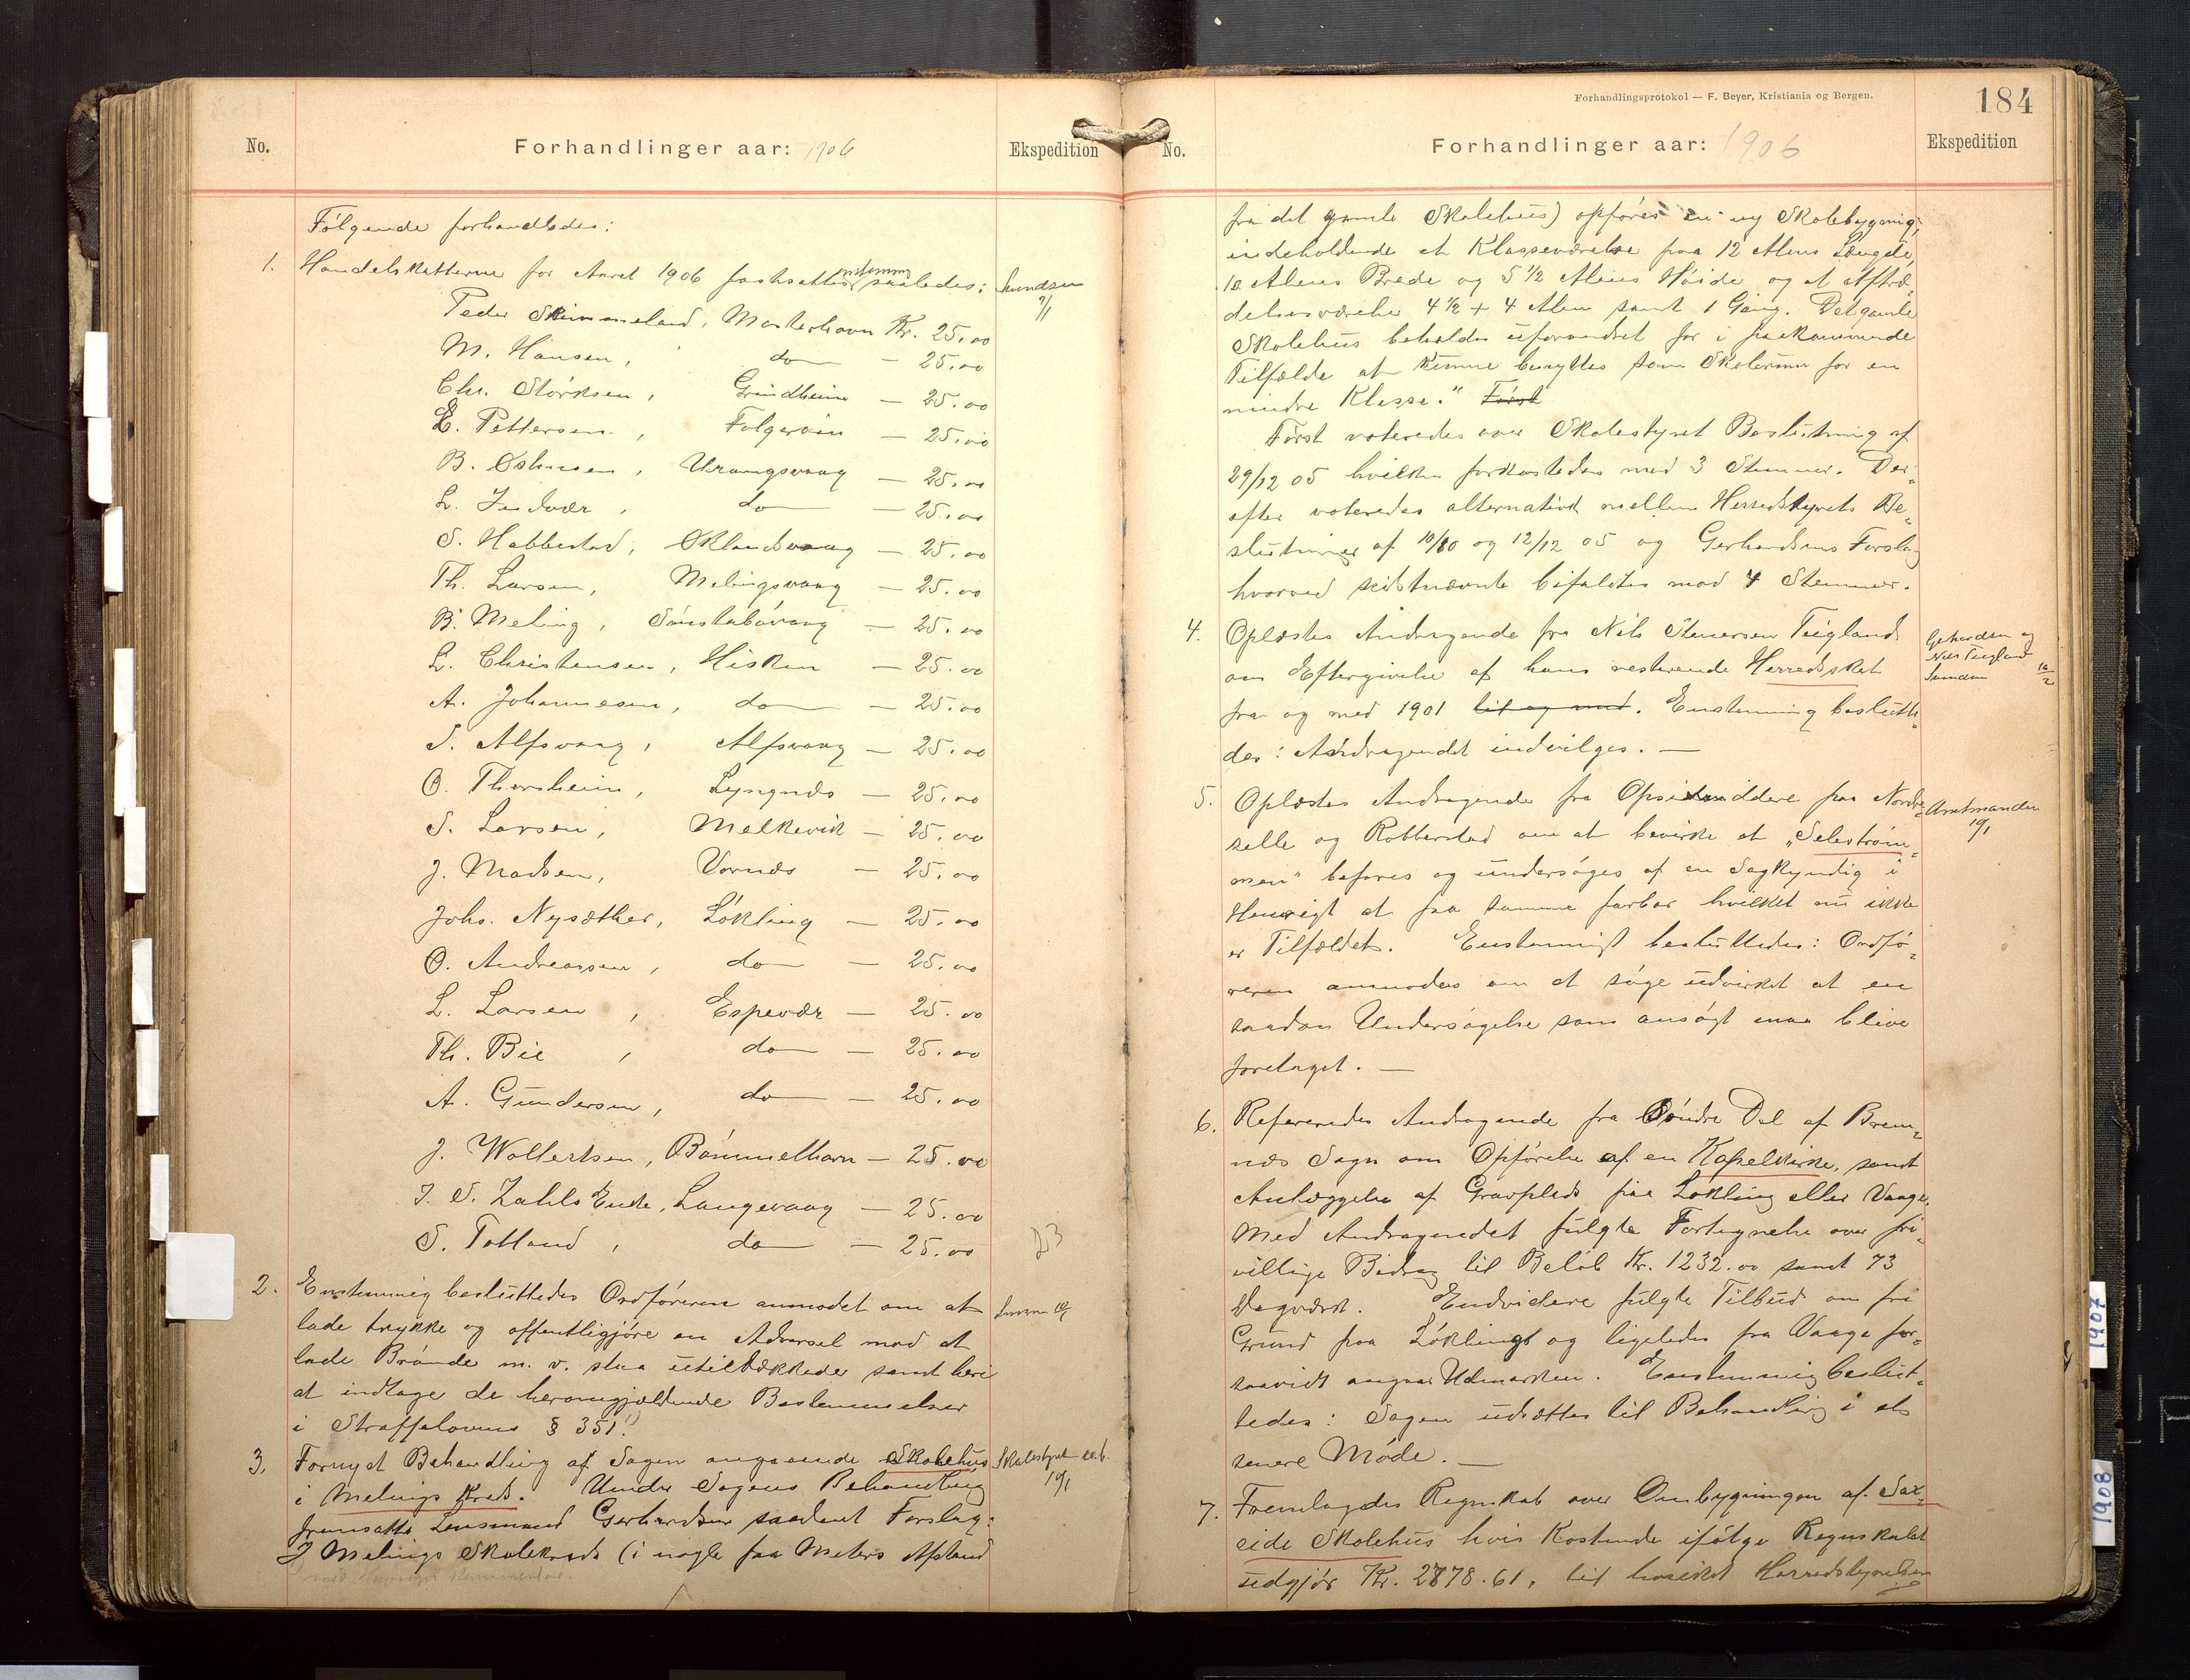 No.
Forhandlinger aar: 1906
Ekspedition
Følgende forhandledes:
1. Handelskatterne for Aaret 1906 fastsattes enstemmig saaledes:
7/1
Peder Skimmeland, Mosterhavn Kr. 25,00
M. Hansen, do — 25.00
Chr. Størksen, Grindheim — 25.00
E. Pettersen, Folgerøen — 25,00
B. Østensen, Urangsvaag — 25,00
L. Indvær, do — 25,00
S. Habbestad, Øklandsvaag — 25.00
Th. Larsen, Melingsvaag — 25.00
B. Meling, Sønstabøvaag — 25.00
L. Christensen, Hisken — 25.00
A. Johannesen, do — 25.00
S. Alfsvaag, Alfsvaag — 25.00
O. Thorsheim, Lyngnæs — 25.00
S. Larsen, Melkevik — 25.00
J. Madsen, Vornæs — 25.00
Johs. Nysæther, Løkling — 25.00
O. Andreassen, do — 25.00
L. Larsen, Espevær — 25.00
Th. Bie, do — 25.00
A. Gundersen, do — 25.00
J. Wollertsen, Bømmelhavn — 25.00
J. S. Zahls Enke, Langevaag — 25.00
S. Totland, do — 25.00
23
2. Enstemmig besluttedes Ordføreren anmodet om at
lade trykke og offentliggjøre en Advarsel mod at
lade Brønde m. v. staa utildækkede samt heri
at indtage de heromgjældende Bestemmelser
i Straffelovens § 351.
3. Fornyet Behandling af Sagen angaaende Skolehus
Skolestyret
10/1
i Melings Kreds. Under Sagens Behandling
fremsatte Lensmand Gerhardsen saadant Forslag:
I Melings Skolekreds (i nogle faa Meters Afstand
Forhandlingsprotokol — F. Beyer, Kristiania og Bergen.
184
No.
Forhandlinger aar: 1906
Ekspedition
fra det gamle Skolehus) opføres en ny Skolebygning,
indeholdende et Klasseværelse paa 12 Alens Længde,
10 Alens Brede og 5 1/2 Alens Høide og et Aftræ-
delsesværelse 4 1/2 + 4 Alen samt 1 Gang. Det gamle
Skolehus beholdes uforandret for i paakommende
Tilfælde at kunne benyttes som Skolerum for en
mindre Klasse." Først
Først voteredes over Skolestyret Beslutning af
29/12 05 hvilken forkastedes med 3 Stemmer. Der-
efter voteredes alternativt mellem Herredstyrets Be-
slutninger af 10/10 og 12/12 05 og Gerhardsens Forslag
hvorved sidstnævnte bifaldtes mod 4 Stemmer.
4. Oplæstes Andragende fra Nils Stenersen Teigland
Gerhardsen og
Nils Teigland
10/2
om Eftergivelse af hans resterende Herredsskat
fra og med 1901 til og med. Enstemmig beslutte-
des: Andragendet indvilges. —
5. Oplæstes Andragende fra Opsiddere paa Nordre
Amtmanden
10/1
selle og Rabberstad om at bevirke at „Selestrøm-
men" befares og undersøges af en Sagkyndig i
Henseigt at faa samme farbar hvilket nu ikke
er Tilfældet. Enstemmigt besluttedes: Ordfø-
reren anmodes om at søge udvirket at en
saadan Undersøgelse som ansøgt maa blive
foretaget. —
6. Refereredes Andragende fra Søndre Del af Brem-
næs Sogn om Opførelse af en Kapelkirke, samt
Anlæggelse af Gravplads paa Løkling eller Vaage.
Med Andragendet fulgte Fortegnelse over fri-
villige Bidrag til Beløb Kr. 1232.00 samt 73
Dagværk. Endvidere fulgte Tilbud om fri
Grund paa Løkling og ligeledes fra Vaage for-
saavidt angaar Udmarken. Enstemmig beslut-
tedes: Sagen udsættes til Behandling i et
senere Møde. —
7. Fremlagdes Regnskab over Ombygningen af Sax-
eide Skolehus hvis Kostende ifølge Regnskabet
udgjør Kr. 2878.61, til hvilket Herredstyrelsen
1907
1908